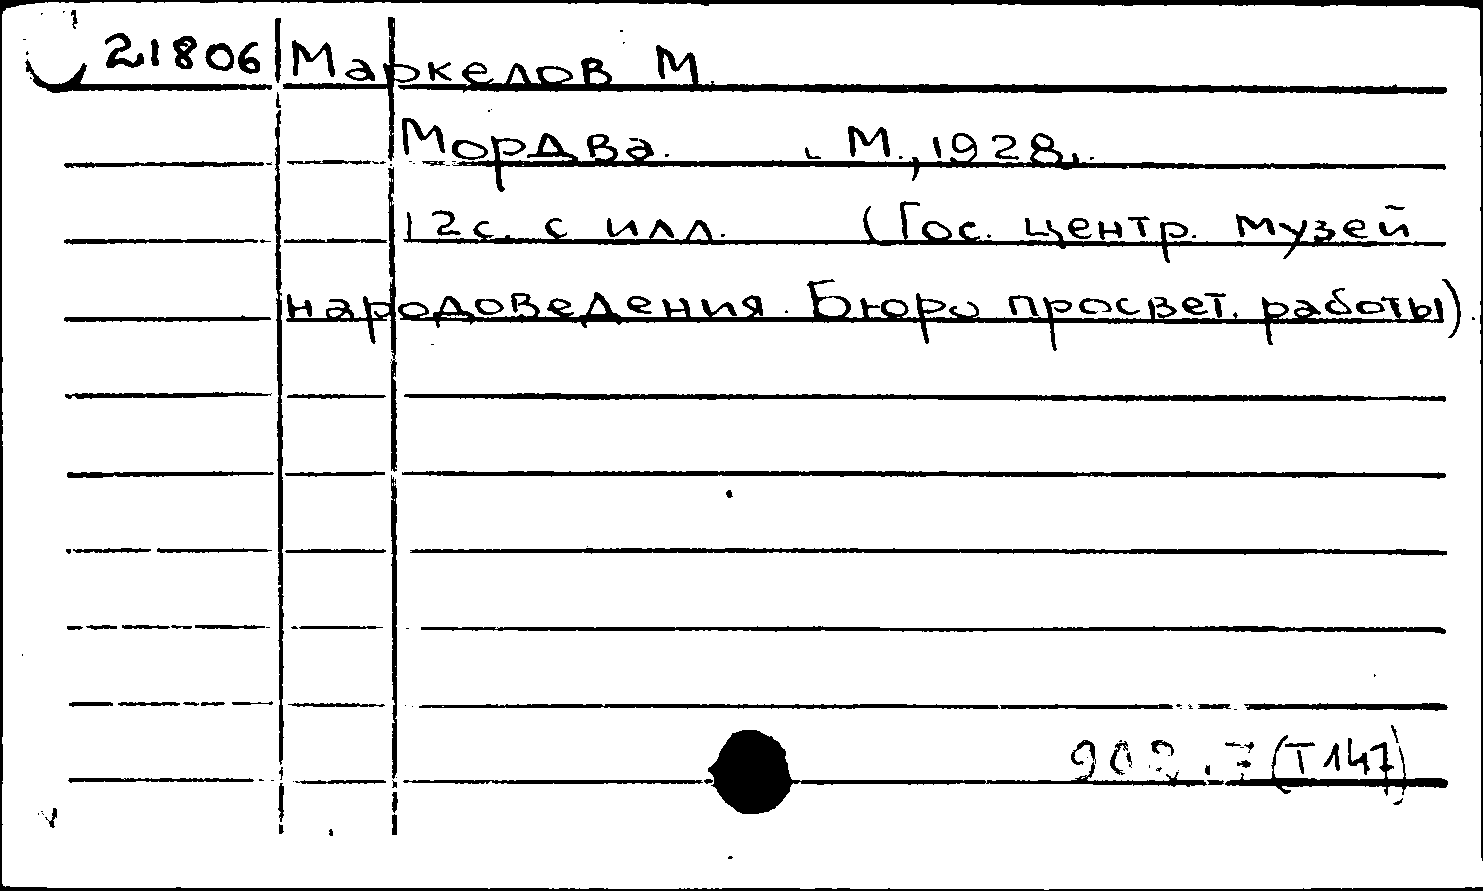 21806 Маркелов М.
Мордва. М., 1928.
12с. с илл. (Гос. центр. музей
народоведения. Бюро просвет. работы).
902.7 (Т147)